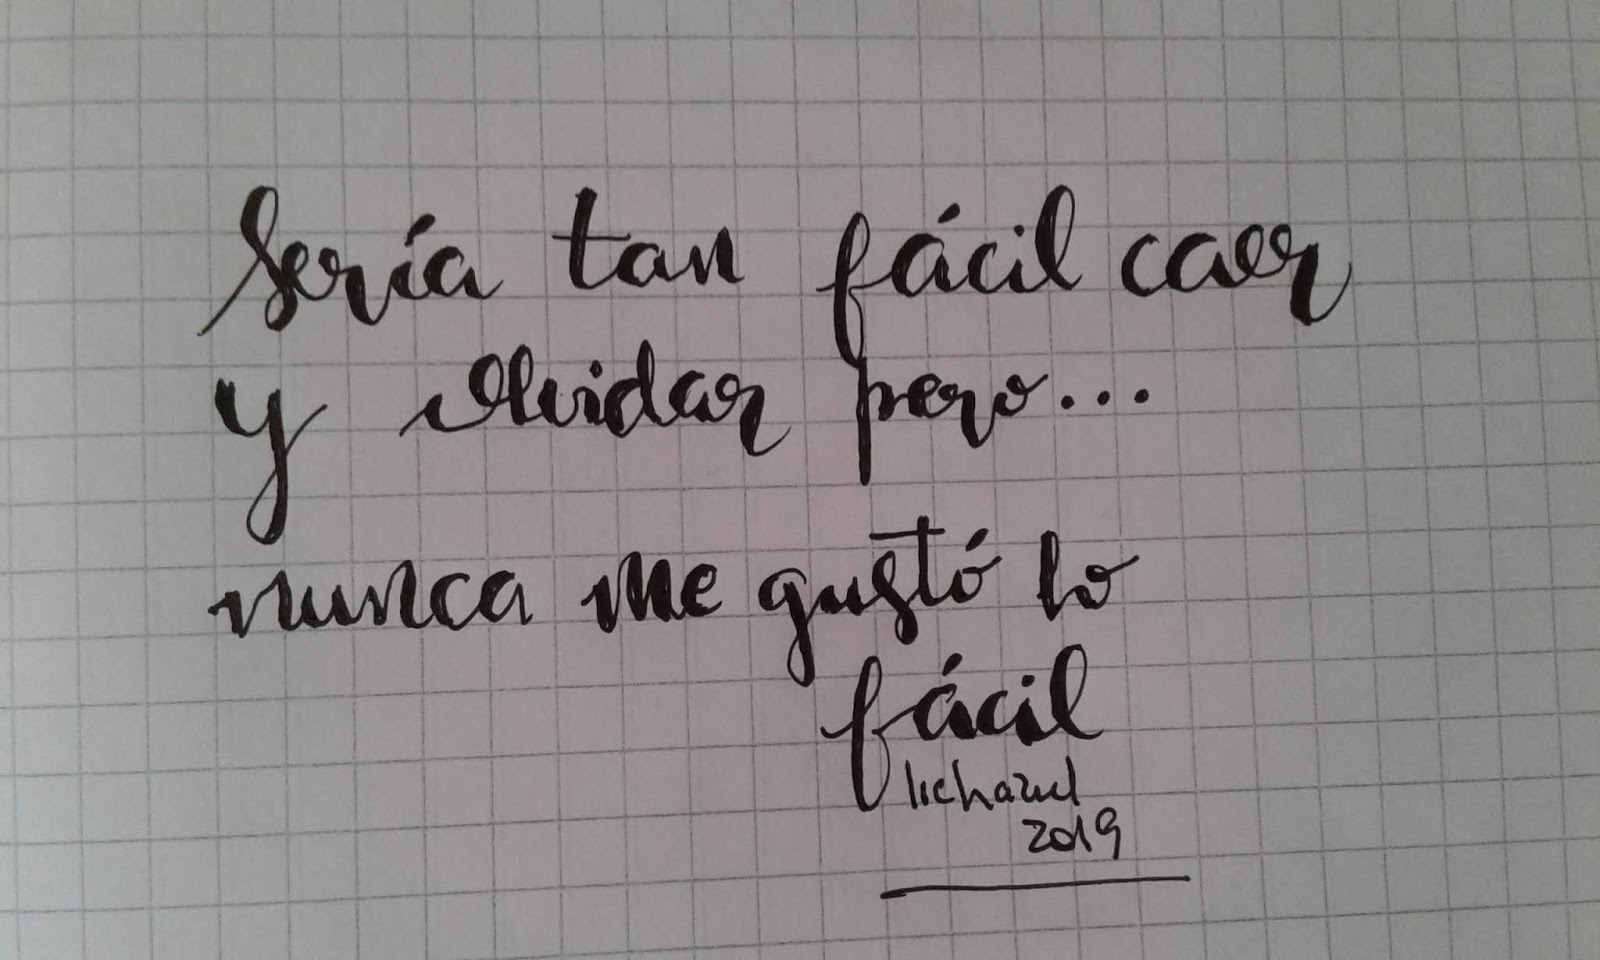 Sería tan fácil caer
y olvidar pero...
nunca me gustó lo
fácil
lichazul
2019